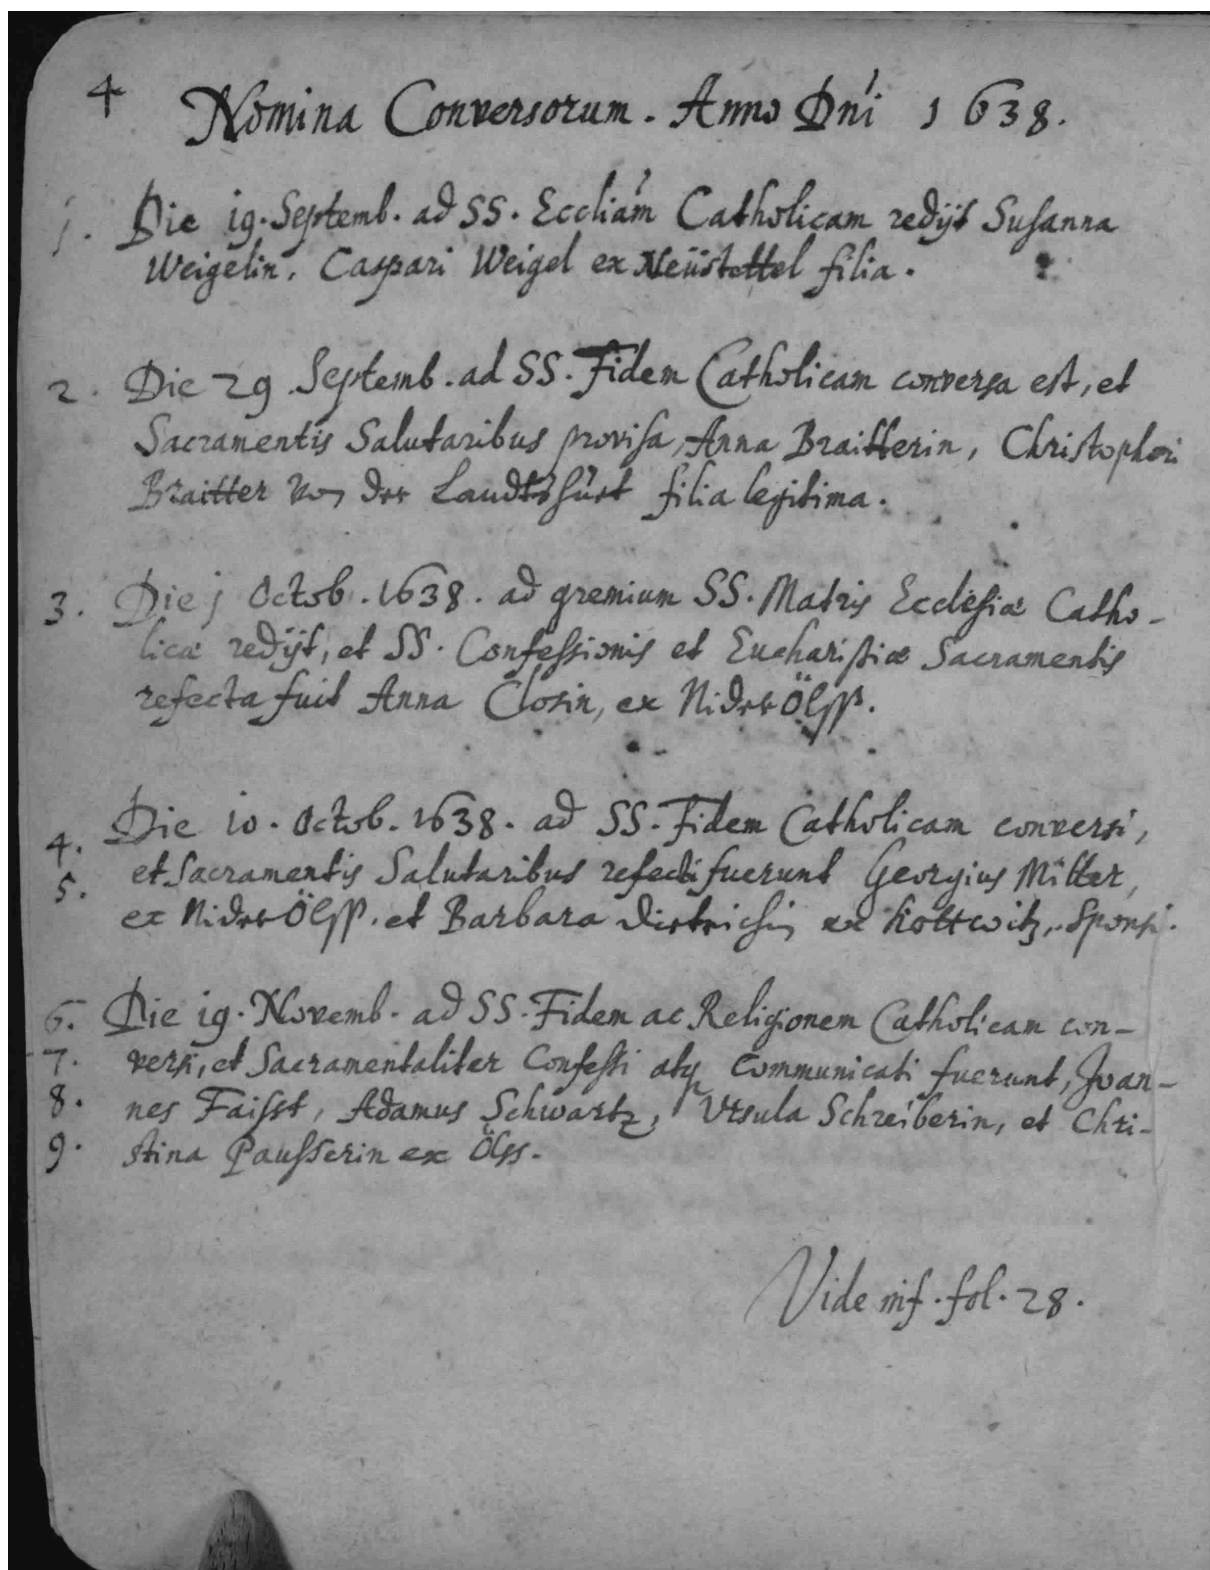 4
Nomina Conversorum. Anno Dñi 1638.
1. Die 19. Septemb. ad SS. Eccliam̃ Catholicam redijt Susanna
Weigelin, Caspari Weigel ex Neüstettel filia.
2. Die 29 Septemb. ad SS. Fidem Catholicam conversa est, et
Sacramentis Salutaribus provisa, Anna Braitterin, Christophori
Braitter von der Landtshüet filia legitima.
3. Die j Octob. 1638. ad gremium SS. Matris Ecclesiæ Catho-
licæ redijt, et SS. Confessionis et Eucharistiæ Sacramentis
refecta fuit Anna Closin, ex NiderÖlß.
4. Die 10. Octob. 1638. ad SS. Fidem Catholicam conversi,
5. et Sacramentis Salutaribus refecti fuerunt Georgius Miller,
ex NiderÖlß. et Barbara Dietrichin ex Kottwitz, Sponsi.
6. Die 19. Novemb. ad SS. Fidem ac Religionem Catholicam con-
7. versi, et Sacramentaliter Confessi atq communicati fuerunt, Joan-
8. nes Faisst, Adamus Schwartz, Vrsula Schreiberin, et Chri-
9. stina Pausserin ex Ölss.
Vide inf. fol. 28.